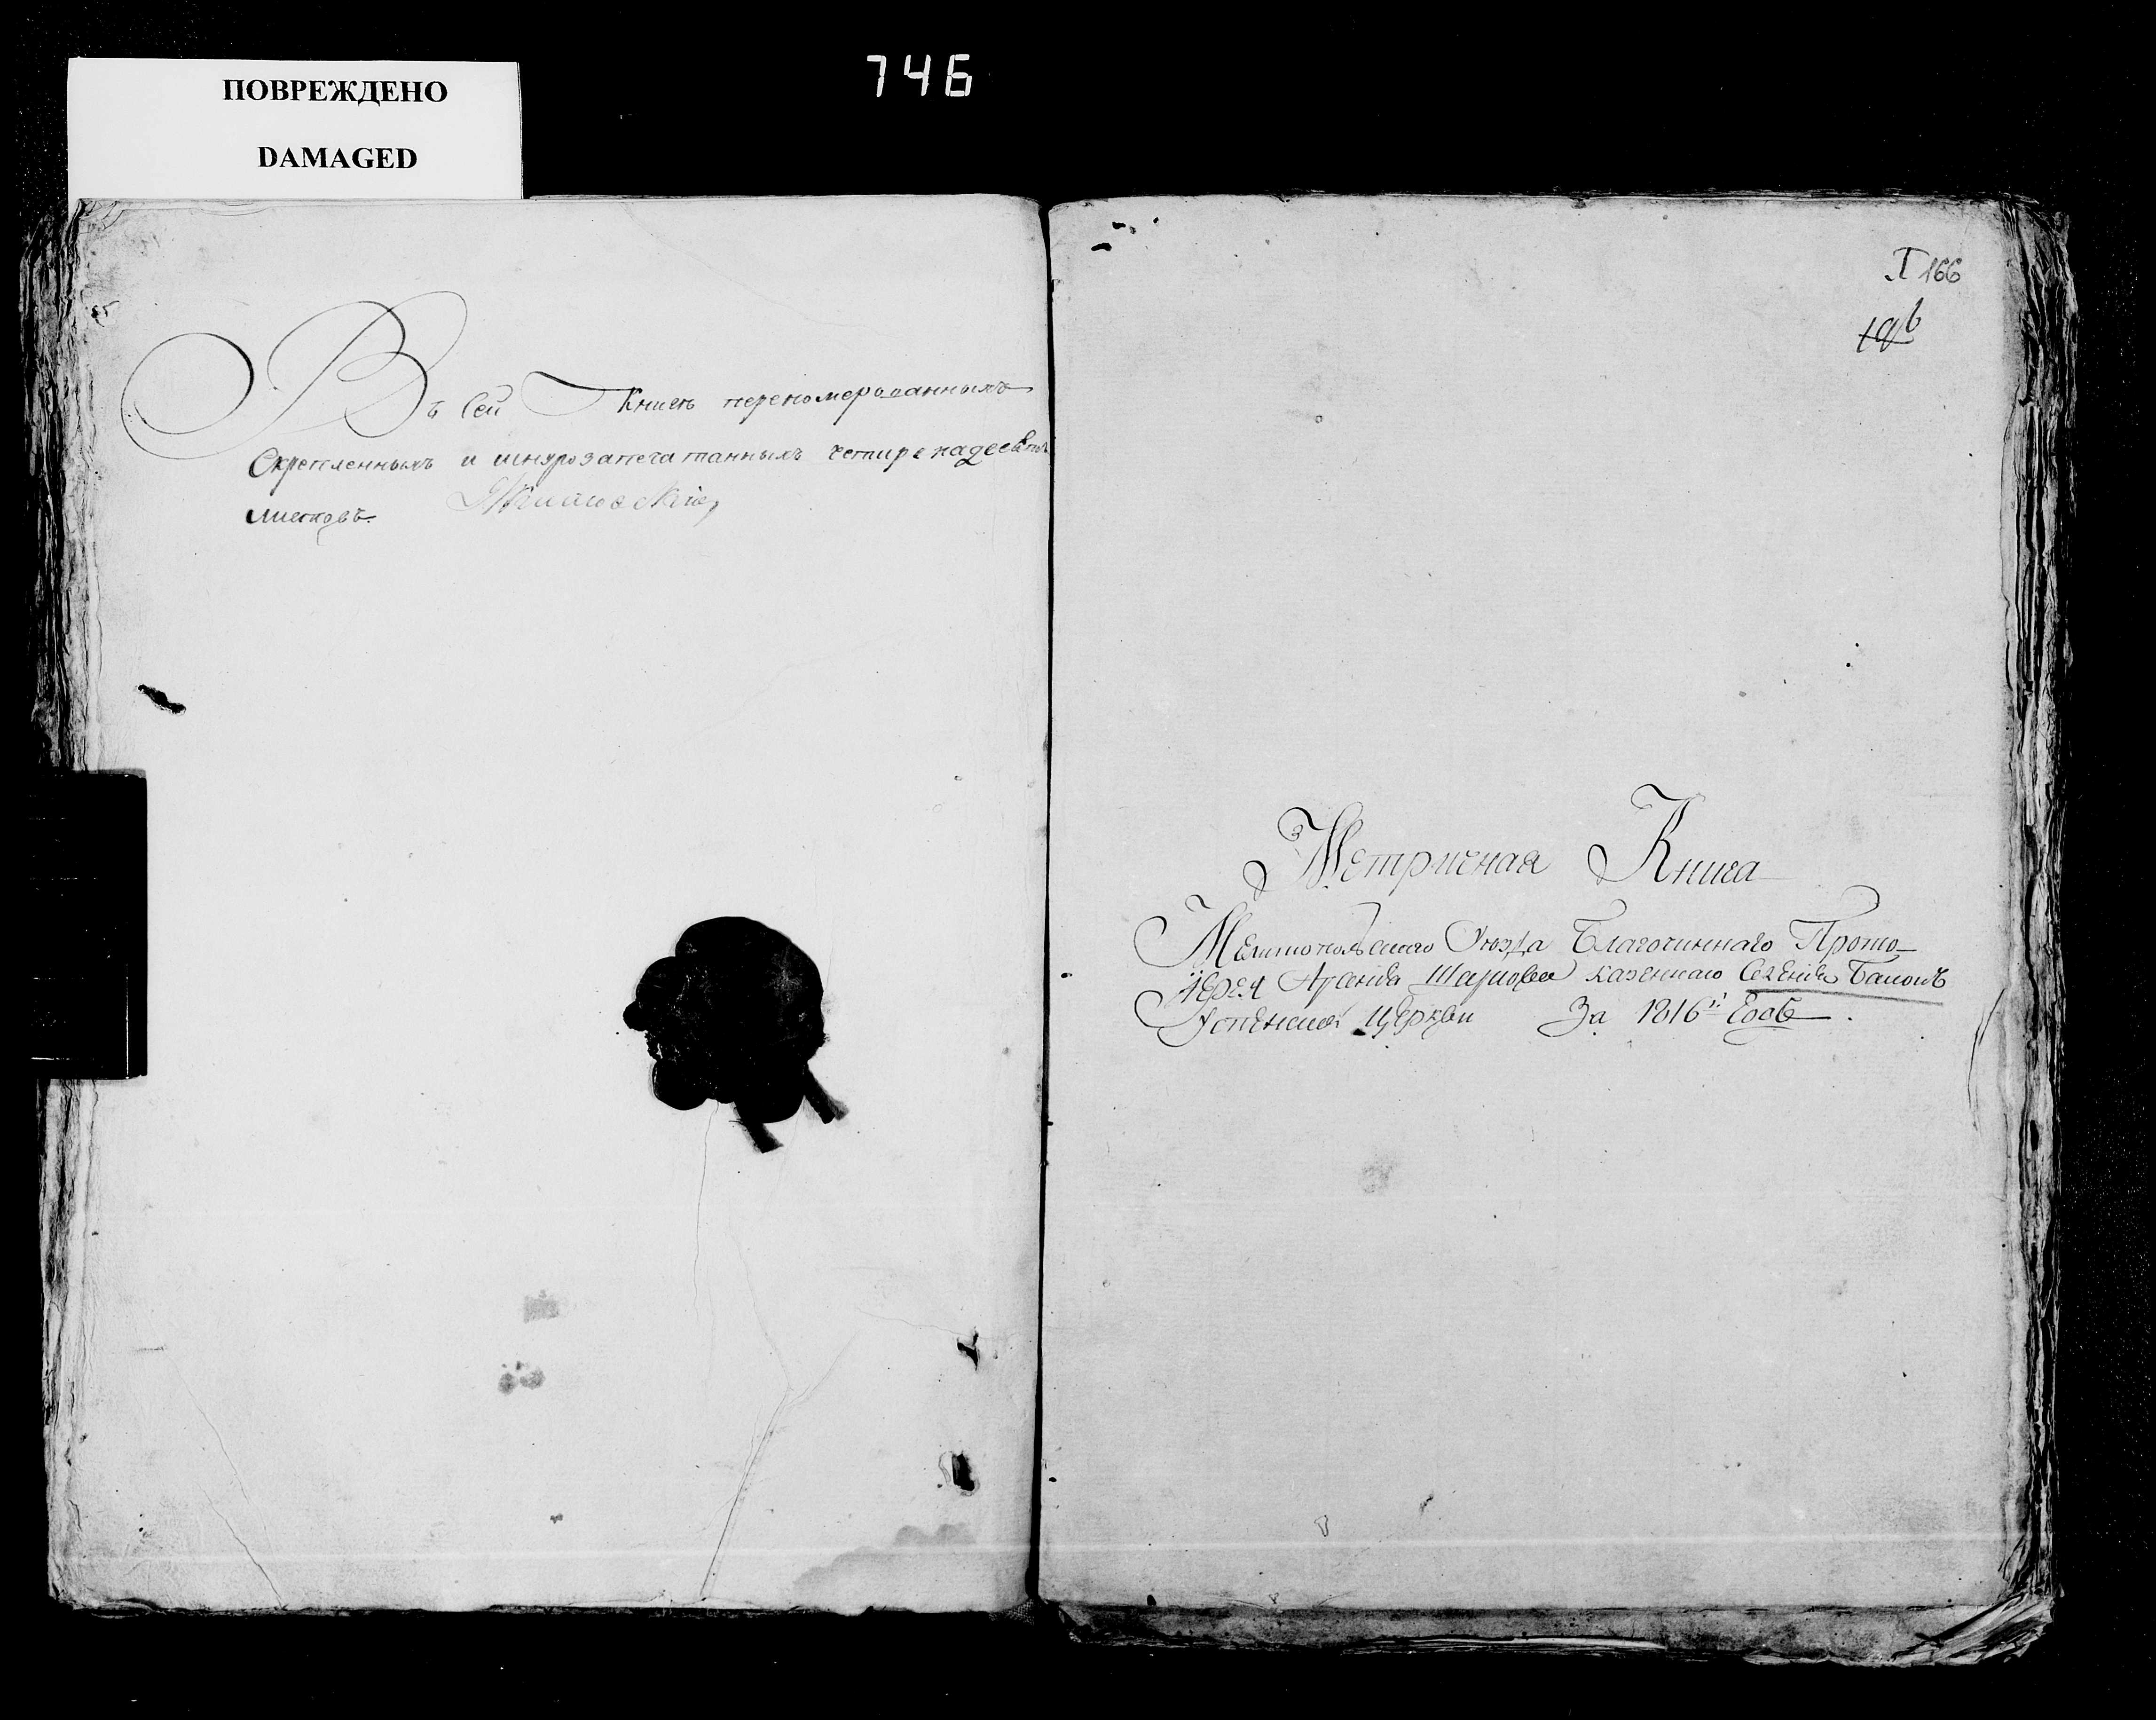 746
ПОВРЕЖДЕНО
DAMAGED
Въ сей Книге переномерованныхъ
Скрепленныхъ и шнурозапечатанныхъ четиренадесеть
листковъ.
166
Метричная Книга
Мелитопольскаго Уезда Благочиннаго Прото-
иерея казеннаго Селения
Успенской Церкви За 1816й Годъ